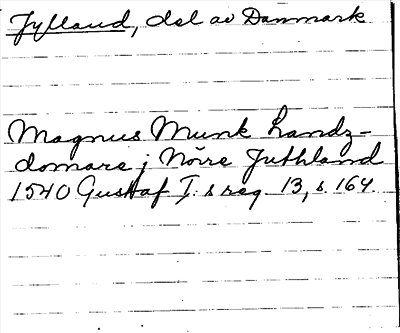 Jylland, del av Danmark
Magnus Munk Landz-
domare j Nörre Juthland
1540 Gustaf I. s reg. 13, s. 164.